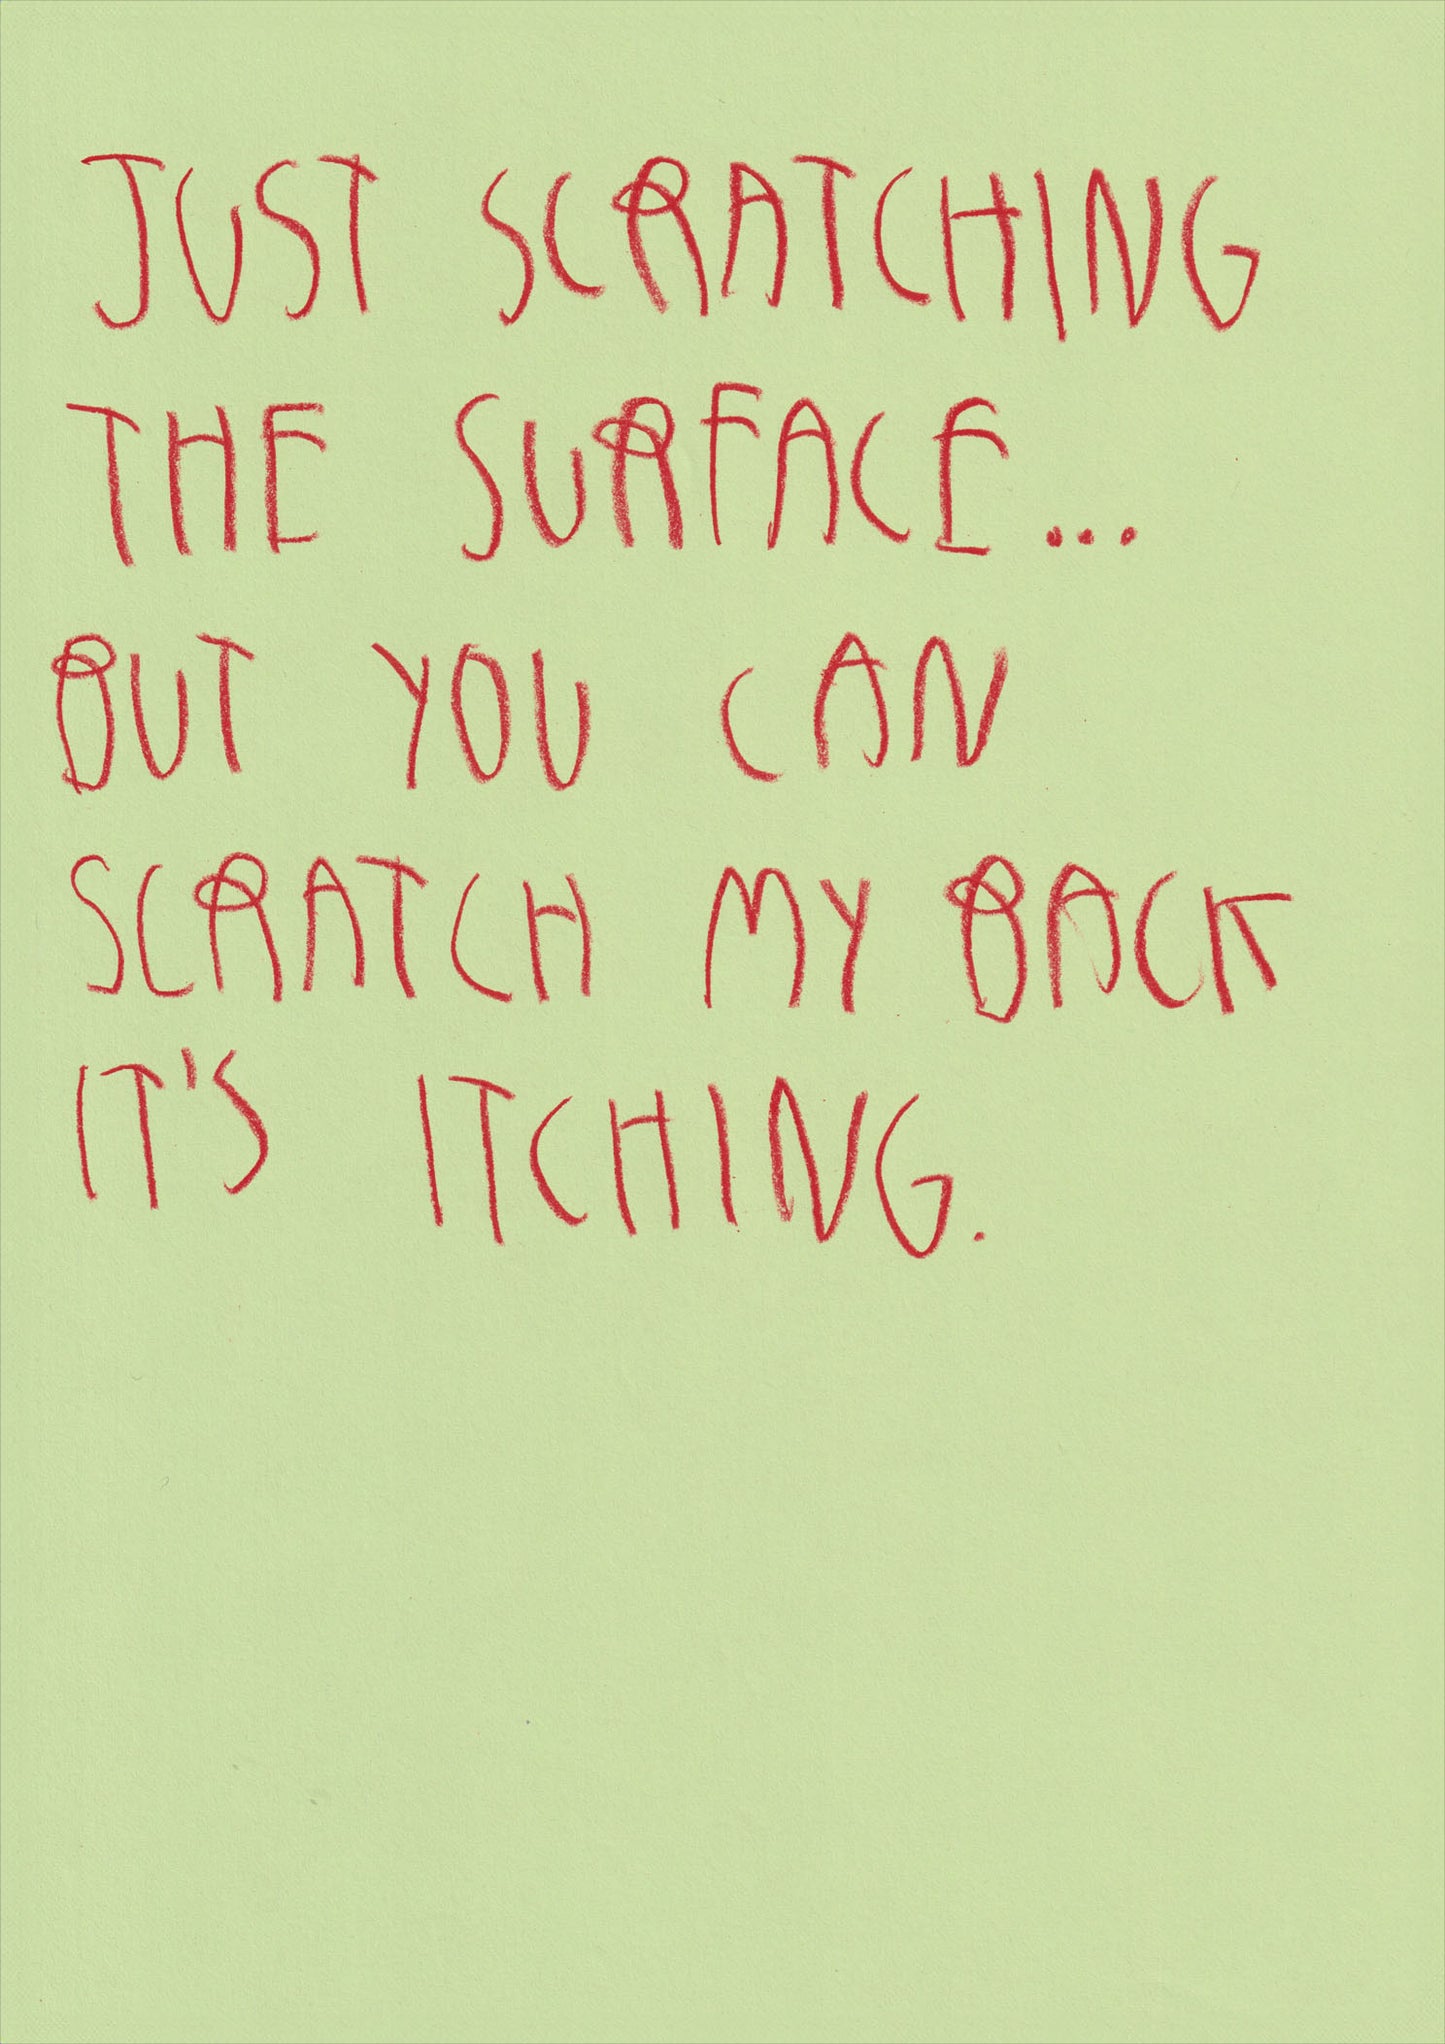 JUST SCRATCHING
THE SURFACE...
BUT YOU CAN
SCRATCH MY BACK
IT'S ITCHING.